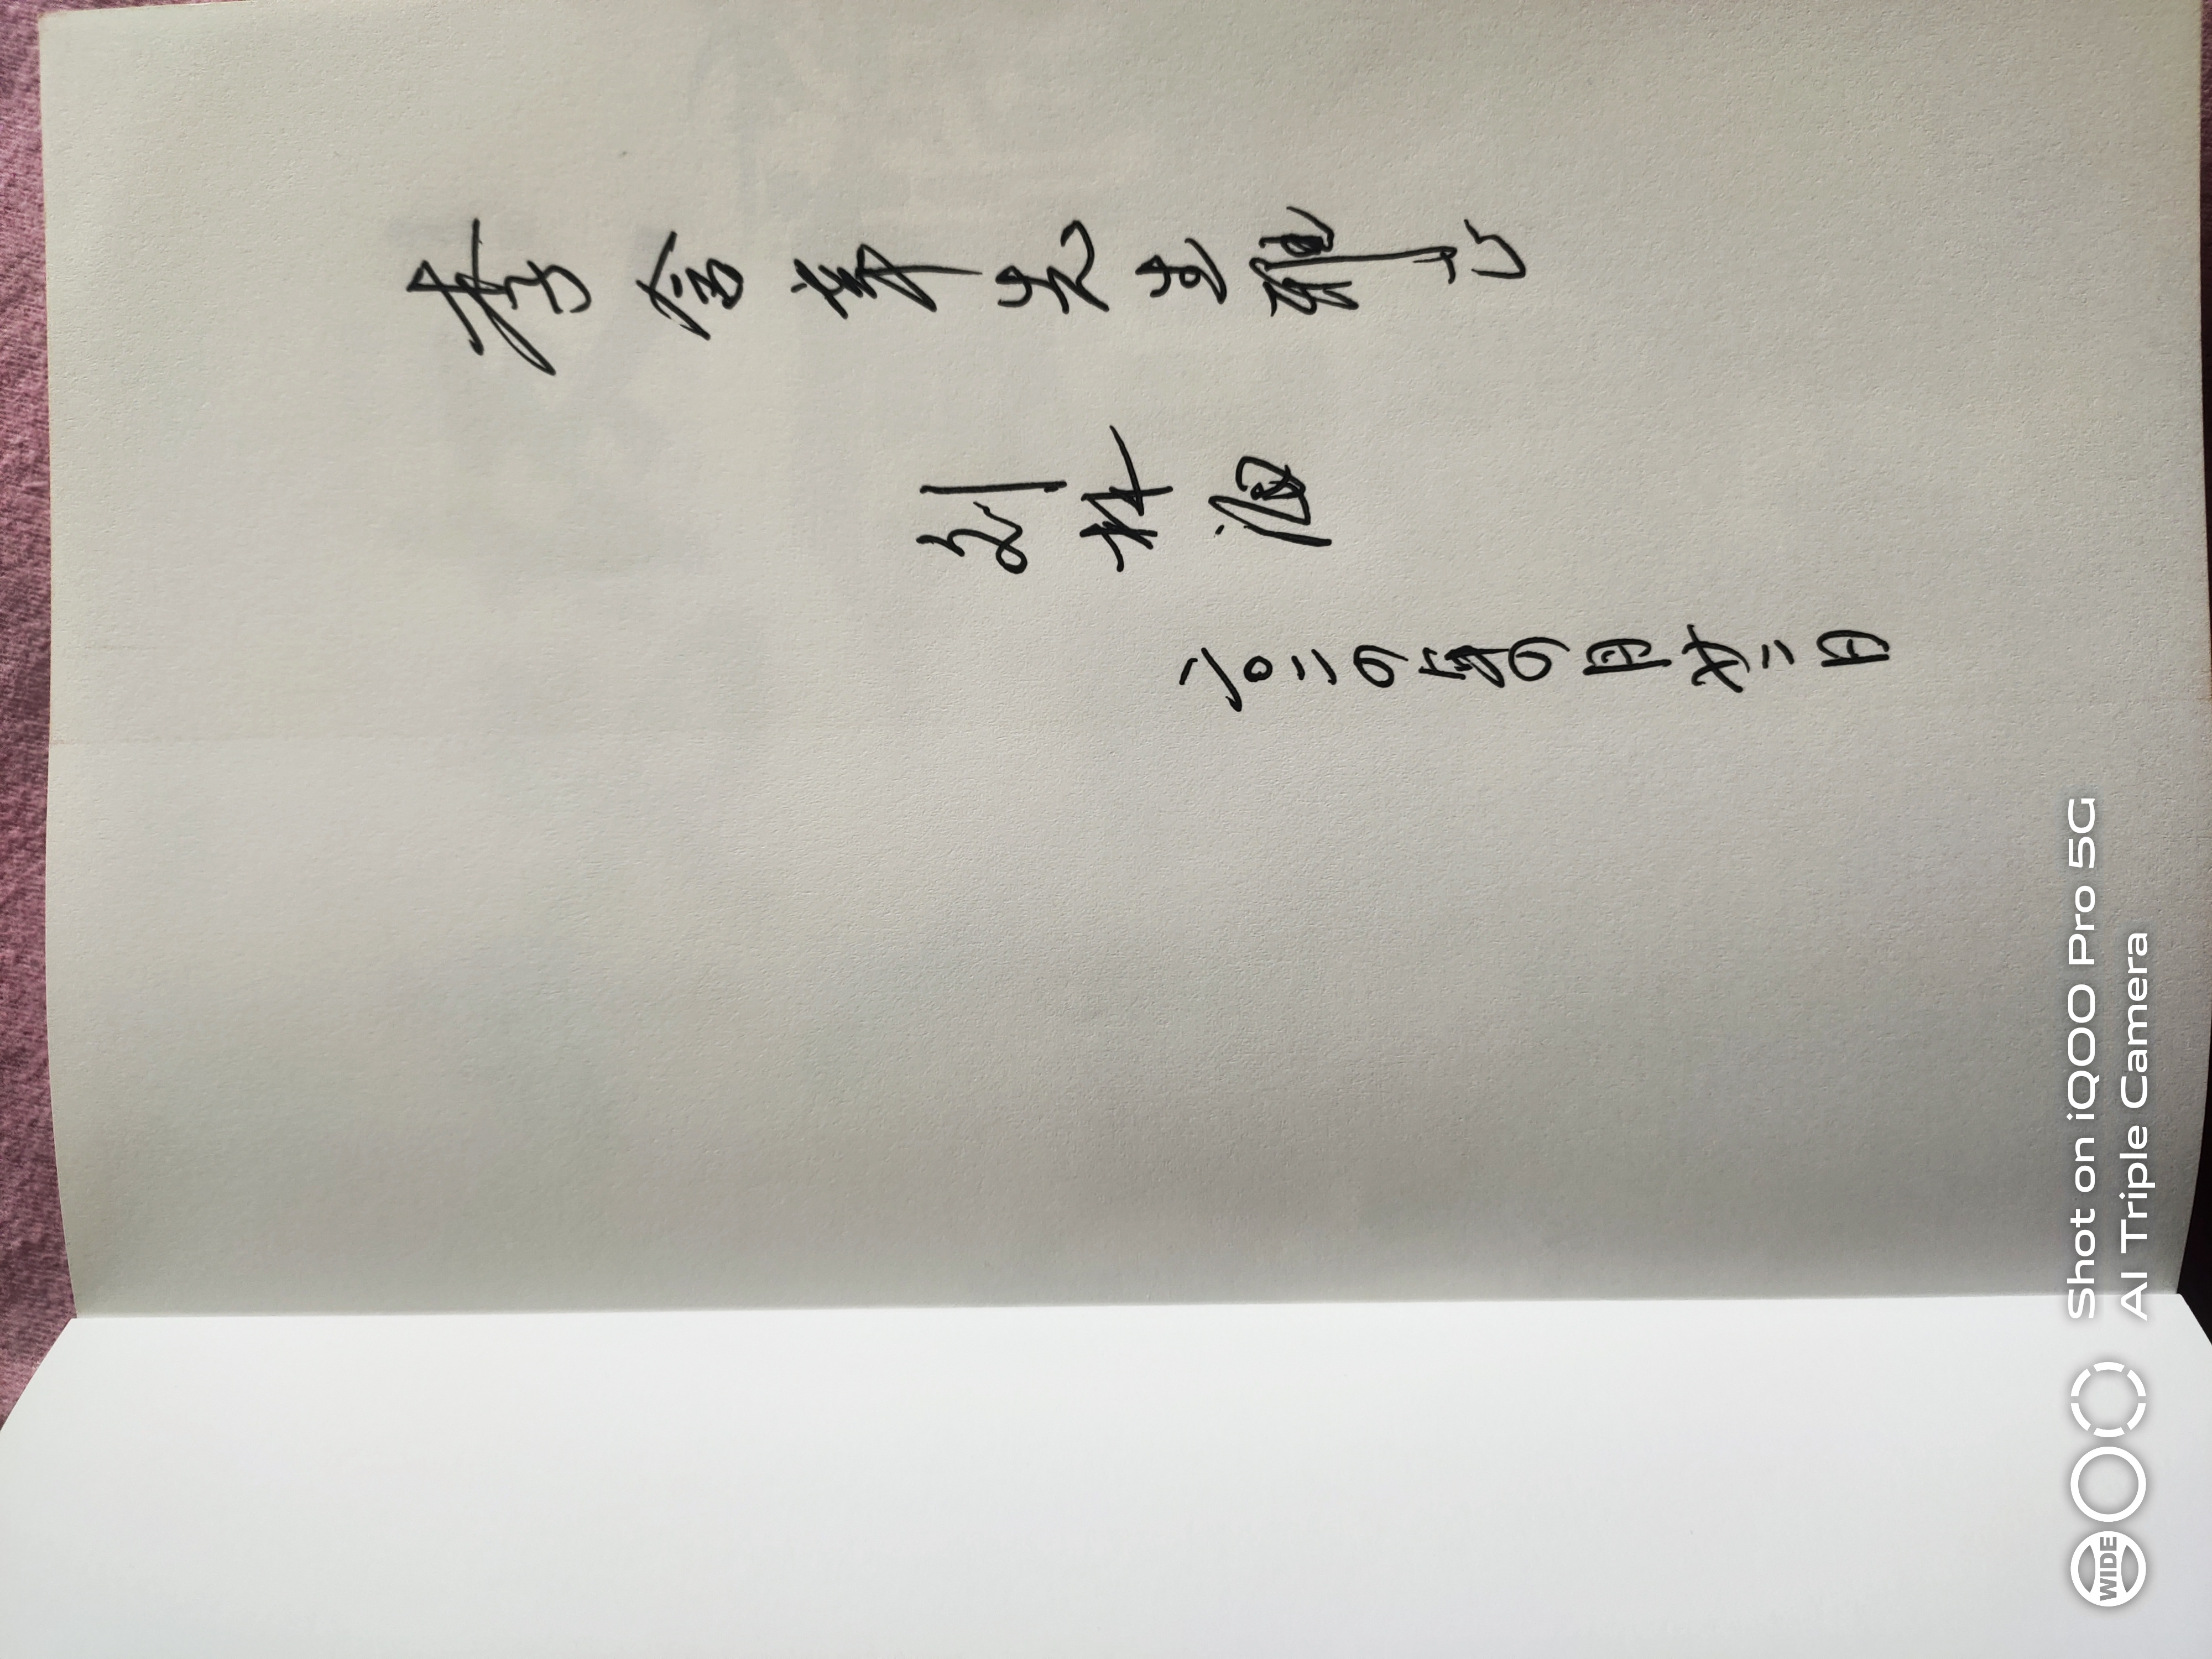 李含章先生雅正
刘林海
二〇二四年四月廿二日
WIDE
Shot on iQOO Pro 5G
AI Triple Camera